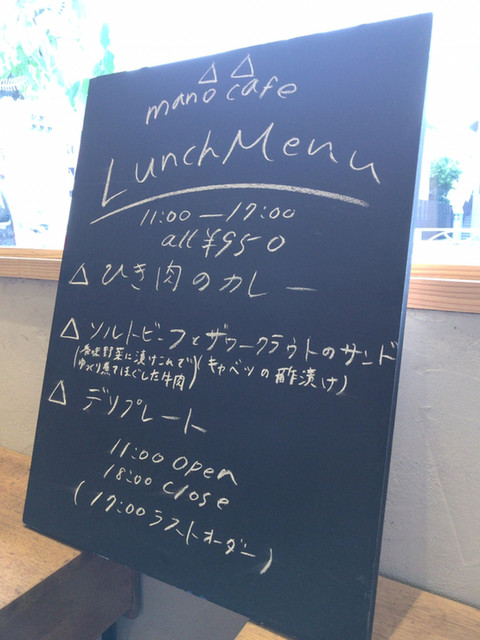 mano cafe
Lunch Menu
11:00 — 17:00
all ¥950
△ ひき肉のカレー
△ ソルトビーフとザワークラウトのサンド
(香味野菜に漬けこんで (キャベツの酢漬け)
ゆっくり煮てほぐした牛肉)
△ デリプレート
11:00 open
18:00 close
(17:00 ラストオーダー)